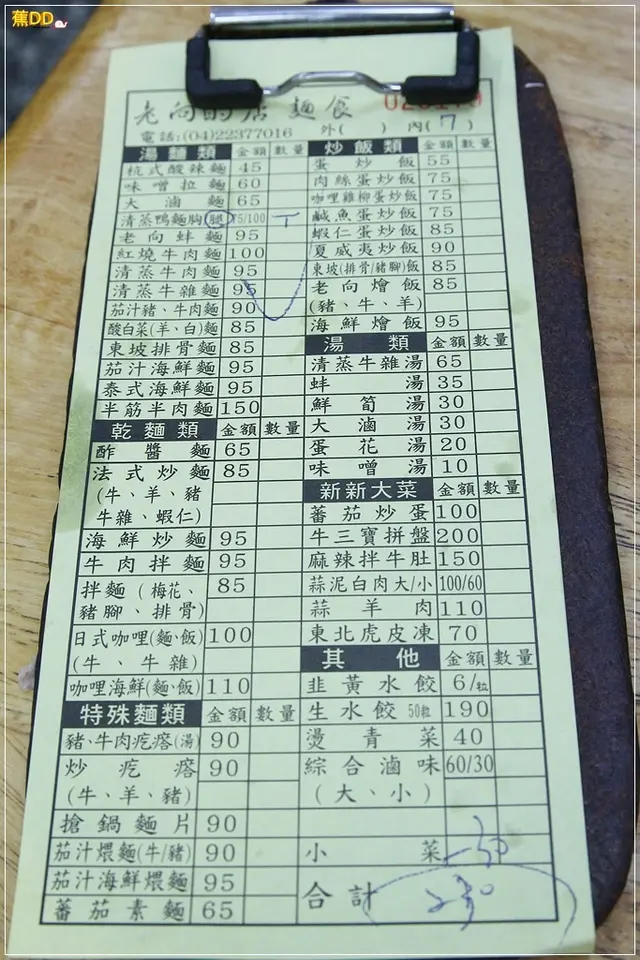 蕉DD
老向的店 麵食
電話:(04)22377016 外( ) 內(7)
湯麵類 金額 數量
杭式酸辣麵 45
味噌拉麵 60
大滷麵 65
清蒸鴨麵胸 腿 75/100
老向蚌麵 95
紅燒牛肉麵 100
清蒸牛肉麵 95
清蒸牛雜麵 95
茄汁豬、牛肉麵 90
酸白菜(羊、白)麵 85
東坡排骨麵 85
茄汁海鮮麵 95
泰式海鮮麵 95
半筋半肉麵 150
乾麵類 金額 數量
酢醬麵 65
法式炒麵 85
(牛、羊、豬
牛雜、蝦仁)
海鮮炒麵 95
牛肉拌麵 95
拌麵(梅花、 85
豬腳、排骨)
日式咖哩(麵、飯) 100
(牛、牛雜)
咖哩海鮮(麵、飯) 110
特殊麵類 金額 數量
豬、牛肉疙瘩(湯) 90
炒疙瘩 90
(牛、羊、豬)
搶鍋麵片 90
茄汁煨麵(牛/豬) 90
茄汁海鮮煨麵 95
蕃茄素麵 65
炒飯類 金額 數量
蛋炒飯 55
肉絲蛋炒飯 75
咖哩雞柳蛋炒飯 75
鹹魚蛋炒飯 75
蝦仁蛋炒飯 85
夏威夷炒飯 90
東坡(排骨/豬腳)飯 85
老向燴飯 85
(豬、牛、羊)
海鮮燴飯 95
湯類 金額 數量
清蒸牛雜湯 65
蚌湯 35
鮮筍湯 30
大滷湯 30
蛋花湯 20
味噌湯 10
新新大菜 金額 數量
蕃茄炒蛋 100
牛三寶拼盤 200
麻辣拌牛肚 150
蒜泥白肉大/小 100/60
蒜羊肉 110
東北虎皮凍 70
其他 金額 數量
韭黃水餃 6/粒
生水餃 50粒 190
燙青菜 40
綜合滷味 60/30
(大、小)
小菜 30
合計 230